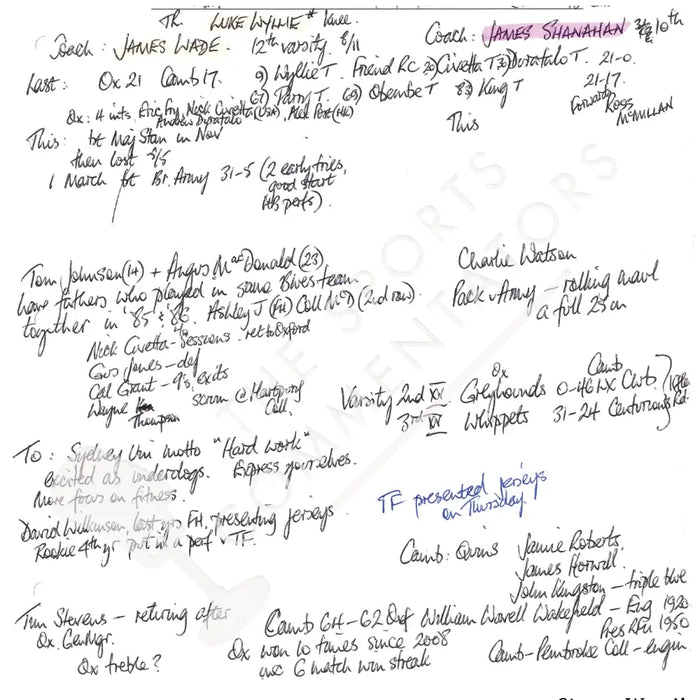 TR. LUKE WYLLIE* knee.
Coach: JAMES WADE. 12th varsity. 8/11
Coach: JAMES SHANAHAN 10th
Last: Ox 21 Camb 17. 9) Wyllie T. Friend RC 20) Civetta T 35) Duratalo T. 21-0.
67) Parry T. 69) Obembe T 83) King T 21-17.
Ox: 4 ints, Eric Fry, Nick Civetta (USA), Matt Post (HK)
Andrew Duratalo
Forward
ROSS
McMILLAN
This: bt Maj Stan in Nov
This
then lost 5/5
1 March bt Br. Army 31-5 (2 early tries,
good start
HB perfs).
Tom Johnson (14) + Angus MacDonald (23)
have fathers who played in same Blues team
together in '85 & '86. Ashley J (FH) Coll McD (2nd row).
Charlie Watson
Pack v Army – rolling maul
a full 25 m
Nick Civetta – Sessions. ret to Oxford
Gus Jones – def
Cal Grant – 9's, exits
Wayne Thompson scrum @ Hartpury
Coll.
Ox Camb
Varsity 2nd XV Greyhounds 0-46 LX Club.
3rd XV Whippets 31-24 Centurions
To: Sydney Uni motto "Hard work"
excited as underdogs. Express yourselves.
More focus on fitness.
TF presented jerseys
on Thursday.
David Wilkinson, last yrs FH, presenting jerseys
Rookie 4th yr put in a perf v TF.
Camb: Quins Jamie Roberts,
James Horwill
John Kingston – triple blue
Tim Stevens – retiring after
Ox. Gen Mgr.
Ox treble?
Camb 64-62 Oxf
Ox won 10 times since 2008
inc 6 match won streak
William Wavell Wakefield – Eng 1920
Pres RFU 1950
Camb – Pembroke Coll – engin
THE SPORTS
COMMENTATORS